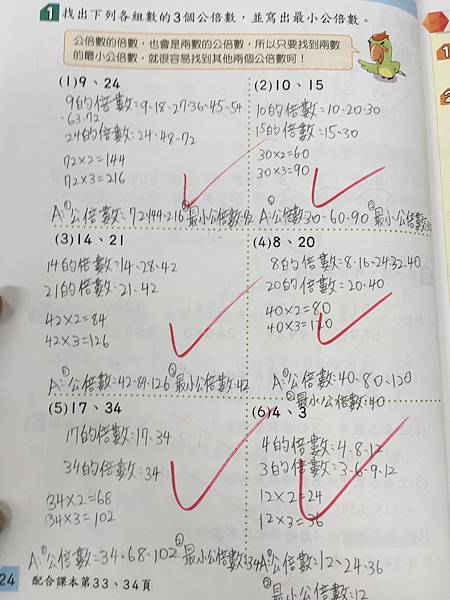 1 找出下列各組數的3個公倍數，並寫出最小公倍數。
公倍數的倍數，也會是兩數的公倍數，所以只要找到兩數
的最小公倍數，就很容易找到其他兩個公倍數呵！
(1)9、24
9的倍數=9.18.27.36.45.54
.63.72
24的倍數=24.48.72
72×2=144
72×3=216
A:①公倍數=72.144.216②最小公倍數=72
(2)10、15
10的倍數=10.20.30
15的倍數=15.30
30×2=60
30×3=90
A:①公倍數30.60.90②最小公倍數30
(3)14、21
14的倍數=14.28.42
21的倍數=21.42
42×2=84
42×3=126
A:①公倍數=42.84.126②最小公倍數=42
(4)8、20
8的倍數=8.16.24.32.40
20的倍數=20.40
40×2=80
40×3=120
A:①公倍數=40.80.120
②最小公倍數=40
(5)17、34
17的倍數=17.34
34的倍數=34
34×2=68
34×3=102
A:①公倍數=34.68.102②最小公倍數=34
(6)4、3
4的倍數=4.8.12
3的倍數=3.6.9.12
12×2=24
12×3=36
A:①公倍數=12.24.36
②最小公倍數=12
24 配合課本第33、34頁